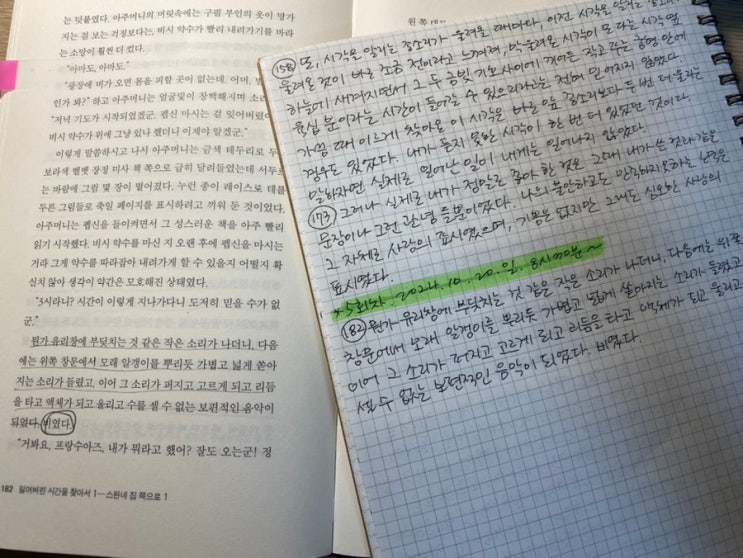 는 덧붙였다. 아주머니의 머릿속에는 구필 부인의 옷이 망가
지는 걸 보는 걱정보다는, 비시 약수가 빨리 내려가기를 바라
는 소망이 훨씬 더 컸다.
"아마도, 아마도."
"광장에 비가 오면 몸을 피할 곳이 없는데, 어머,
인가 봐?" 하고 아주머니는 얼굴빛이 창백해지며 소리
"저녁 기도가 시작되었겠군. 펩신 마시는 걸 잊어버렸
비시 약수가 위에 그냥 있나 했더니 이제야 알겠군."
이렇게 말씀하시고 나서 아주머니는 금색 테두리로 두
보라색 벨벳 장정 미사 책 쪽으로 급히 달려들었는데 서두르
는 바람에 그림 몇 장이 떨어졌다. 누런 종이 레이스로 테를
두른 그림들로 축일 페이지를 표시하려고 끼워 둔 것이었다.
아주머니는 펩신을 들이켜면서 그 성스러운 책을 아주 빨리
읽기 시작했다. 비시 약수를 마신 지 오랜 후에 펩신을 마시는
거라 그게 약수를 따라잡아 내려가게 할 수 있을지 어떨지 확
실치 않아 생각이 약간은 모호해진 상태였다.
"3시라니! 시간이 이렇게 지나가다니 도저히 믿을 수가 없
군."
뭔가 유리창에 부딪치는 것 같은 작은 소리가 나더니, 다음
에는 위쪽 창문에서 모래 알갱이를 뿌리듯 가볍고 넓게 쏟아
지는 소리가 들렸고, 이어 그 소리가 퍼지고 고르게 되고 리듬
을 타고 액체가 되고 울리고 수를 셀 수 없는 보편적인 음악이
되었다. 비였다.
"거봐요, 프랑수아즈, 내가 뭐라고 했어? 잘도 오는군! 정
182 잃어버린 시간을 찾아서 1—스완네 집 쪽으로 1
왼쪽
(158) 또, 시각을 알리는 종소리가 울려올 때마다, 이전 시각을 알리는
울려온 것이 바로 조금 전이라고 느껴져, 막 울려온 시각이 또 다른 시각 옆
하늘에 새겨지면서 그 두 금빛 기호 사이에 끼어든 작고 푸른 궁형 안에
육십 분이라는 시간이 들어갈 수 있으리라고는 전혀 믿어지지 않았다.
가끔 때 이르게 찾아온 이 시각은 바로 앞 종소리보다 두 번 더 울리는
경우도 있었다. 내가 듣지 못한 시각이 한 번 더 있었던 것이다.
말하자면 실제로 일어난 일이 내게는 일어나지 않았다.
(173) 그러나 실제로 내가 정말로 좋아한 것은 그때 내가 쓴 것과 같은
문장이나 그런 관념들뿐이었다. 나의 불안하고도 만족하지 못하는 노력은
그 자체로 사랑의 표시였으며, 기쁨은 없지만 그래도 심오한 사랑의
표시였다.
* 5회차. 2024. 10. 20. 일. 8시00분~
(182) 뭔가 유리창에 부딪치는 것 같은 작은 소리가 나더니, 다음에는 위쪽
창문에서 모래 알갱이를 뿌리듯 가볍고 넓게 쏟아지는 소리가 들렸고
이어 그 소리가 퍼지고 고르게 되고 리듬을 타고 액체가 되고 울리고
셀 수 없는 보편적인 음악이 되었다. 비였다.